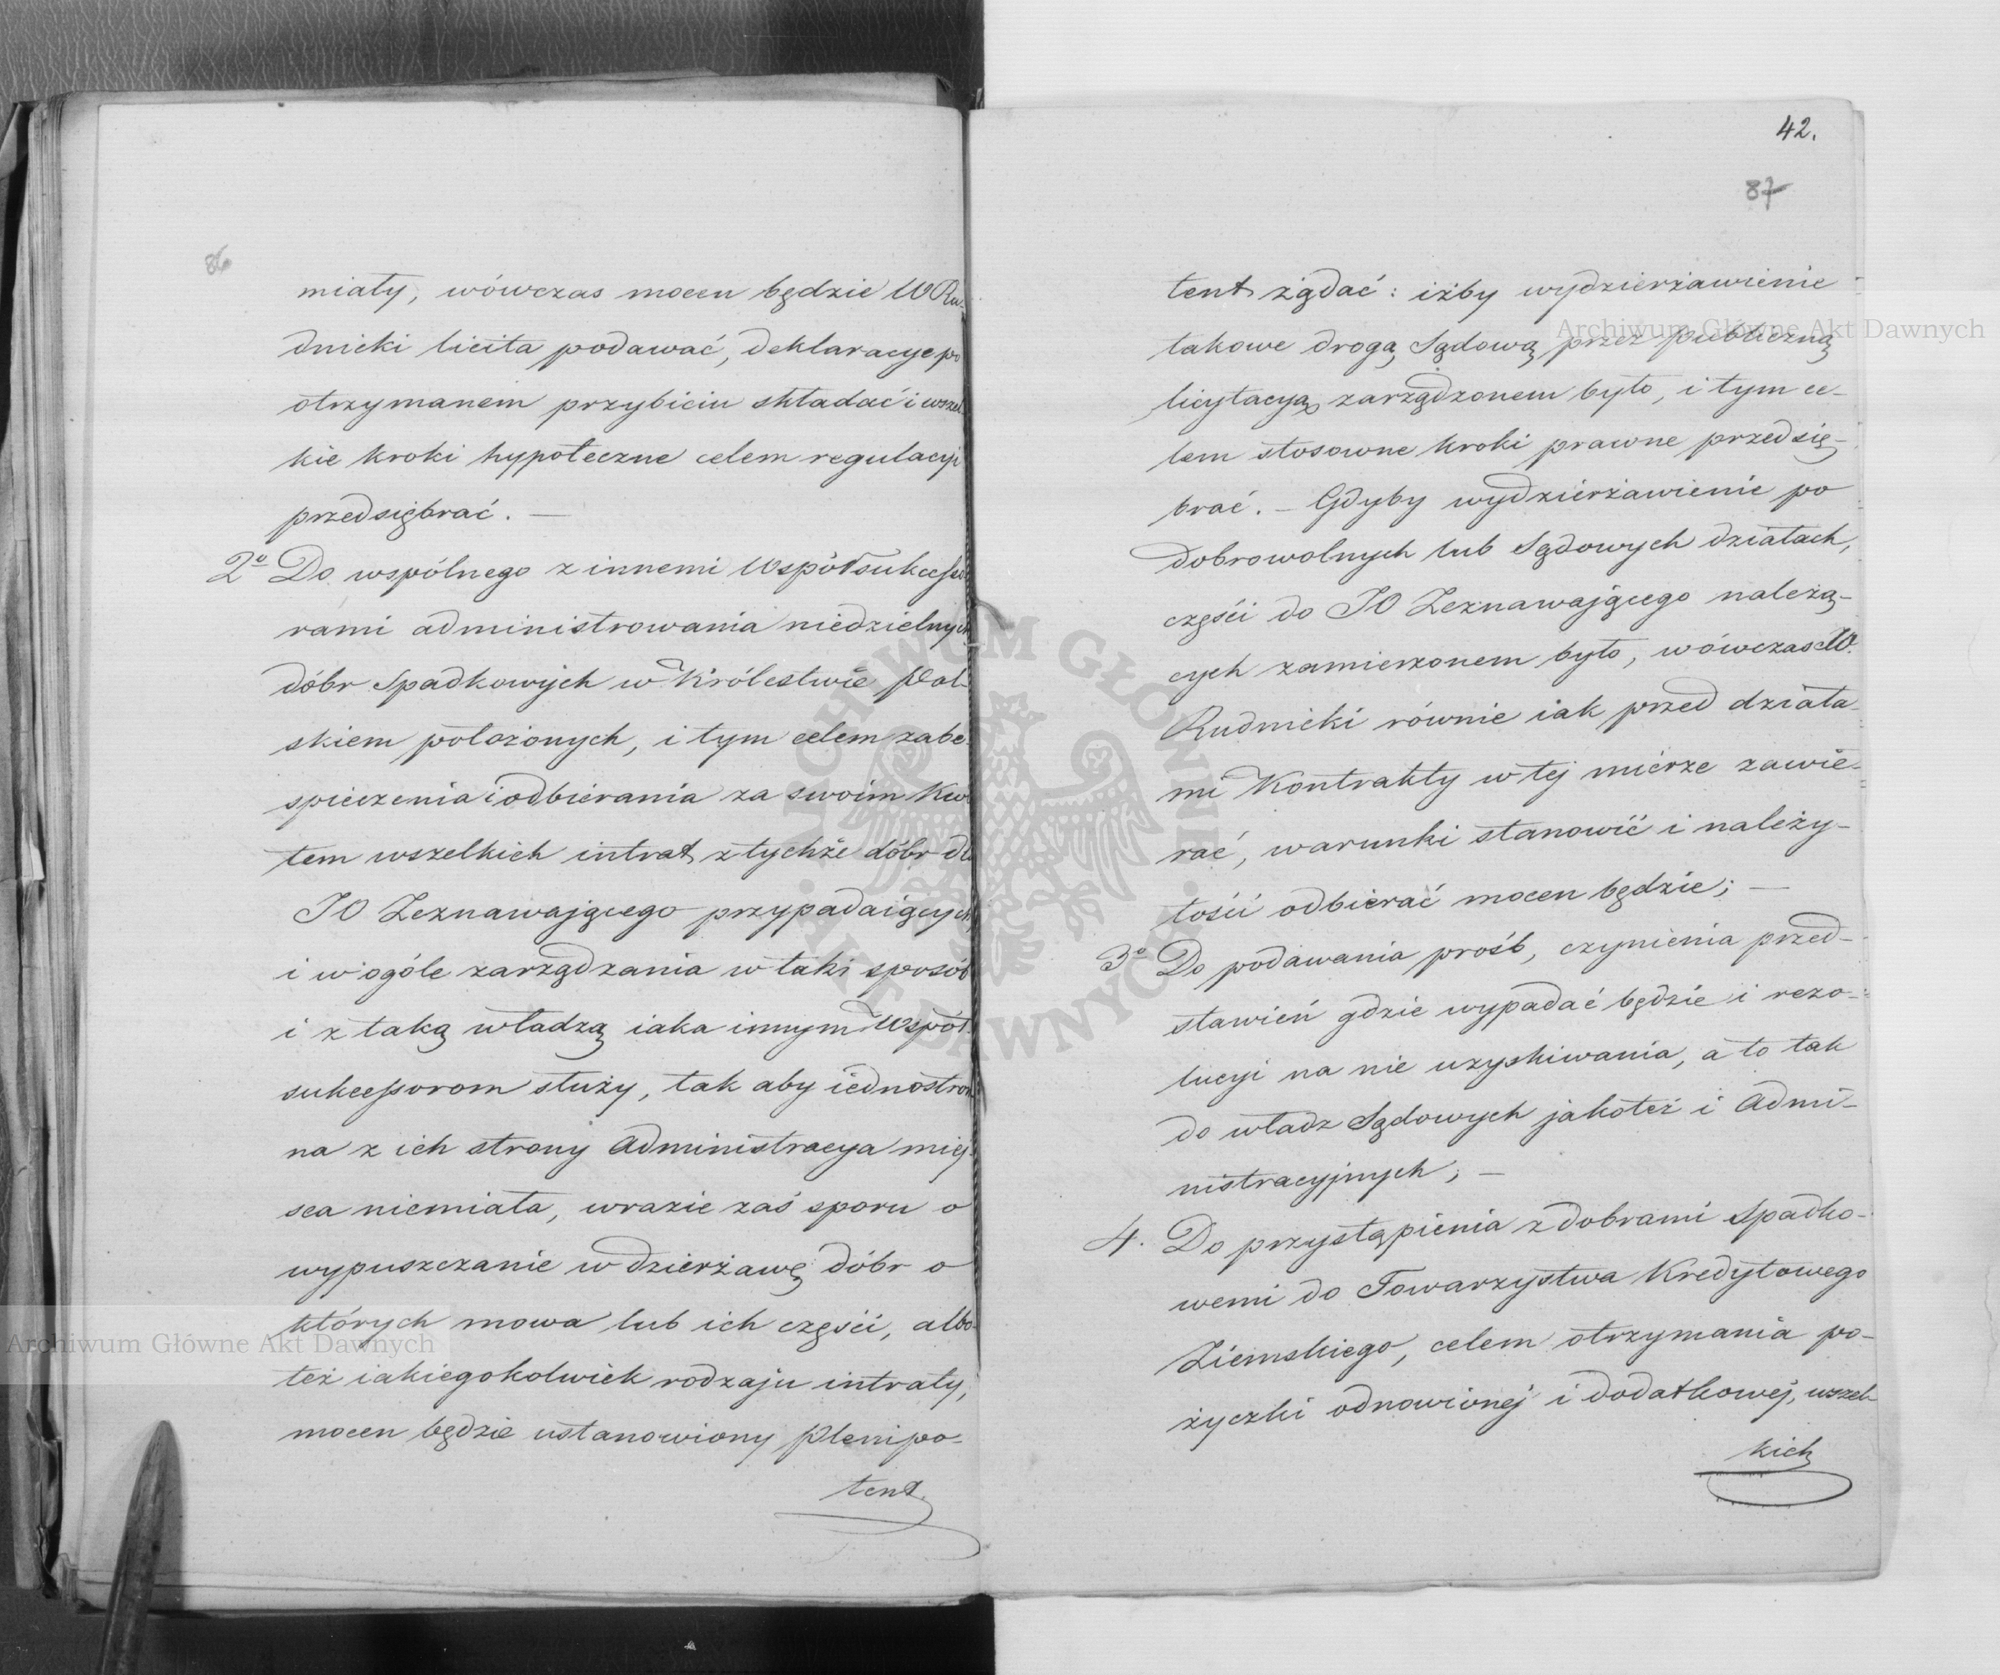 86
miały, wówczas mocen będzie W Ru-
dnicki licita podawać, deklaracye po
otrzymanem przybiciu składać i wszel
kie kroki hypoteczne celem regulacyi
przedsiębrać. —
2o Do wspólnego z innemi Współsukcesso
rami administrowania niedzielnych
dóbr Spadkowych w Królestwie Pol-
skiem położonych, i tym celem zabe-
spieczenia i odbierania za swoim kwi
tem wszelkich intrat z tychże dóbr dla
JO Zeznawającego przypadaiących,
i w ogóle zarządzania w taki sposób
i z taką władzą iaka innym Współ-
sukcessorom służy, tak aby iednostron
na z ich strony Administracya miej
sca niemiała, wrazie zaś sporu o
wypuszczanie w dzierżawę dóbr o
których mowa lub ich części, albo-
też iakiegokolwiek rodzaju intraty,
mocen będzie ustanowiony Plenipo-
tent
42.
87
tent żądać: iżby wydzierżawienie
takowe drogą Sądową przez publiczną
licytacyą zarządzonem było, i tym ce-
lem stosowne kroki prawne przedsię-
brać. — Gdyby wydzierżawienie po
dobrowolnych lub Sądowych działach,
części do JO Zeznawającego należą-
cych zamierzonem było, wówczas W.
Rudnicki równie iak przed działa-
mi Kontrakty w tej mierze zawie-
rać, warunki stanowić i należy-
tości odbierać mocen będzie; —
3o Do podawania prośb, czynienia przed-
stawień gdzie wypadać będzie i rezo-
lucyi na nie uzyskiwania, a to tak
do władz Sądowych jakoteż i Admi-
nistracyjnych; —
4. Do przystąpienia z dobrami Spadko-
wemi do Towarzystwa Kredytowego
Ziemskiego, celem otrzymania po-
życzki odnowionej i dodatkowej, wszel-
kich
Archiwum Główne Akt Dawnych
Archiwum Główne Akt Dawnych
ARCHIWUM GŁÓWNE AKT DAWNYCH